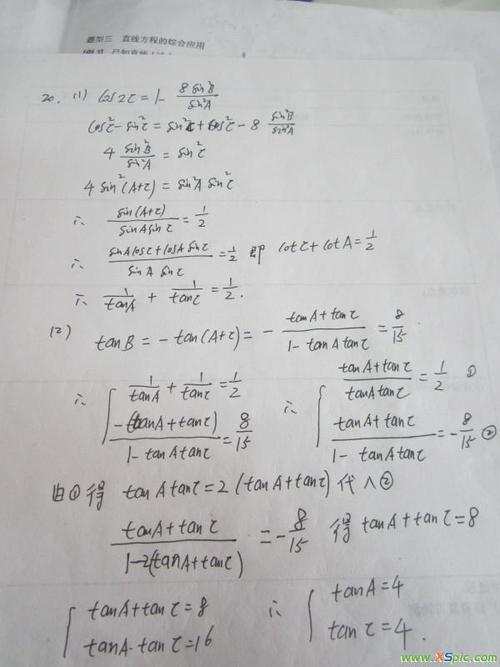 题型三 直线方程的综合应用
20. (1) cos2C = 1 - 8 sin²B / sin²A
cos²C - sin²C = sin²C + cos²C - 8 sin²B / sin²A
4 sin²B / sin²A = sin²C
4 sin²(A+C) = sin²A sin²C
∴ sin(A+C) / sinA sinC = 1/2
∴ sinA cosC + cosA sinC / sinA sinC = 1/2 即 cotC + cotA = 1/2
∴ 1/tanA + 1/tanC = 1/2.
(2) tanB = -tan(A+C) = - tanA + tanC / 1 - tanA tanC = 8/15
∴ { 1/tanA + 1/tanC = 1/2 ∴ { tanA + tanC / tanA tanC = 1/2 ①
-(tanA + tanC) / 1 - tanA tanC = 8/15 tanA + tanC / 1 - tanA tanC = -8/15 ②
由①得 tanA tanC = 2(tanA + tanC) 代入②
tanA + tanC / 1-2(tanA + tanC) = -8/15 得 tanA + tanC = 8
{ tanA + tanC = 8 ∴ { tanA = 4
tanA · tanC = 16 tanC = 4.
www.XSpic.com